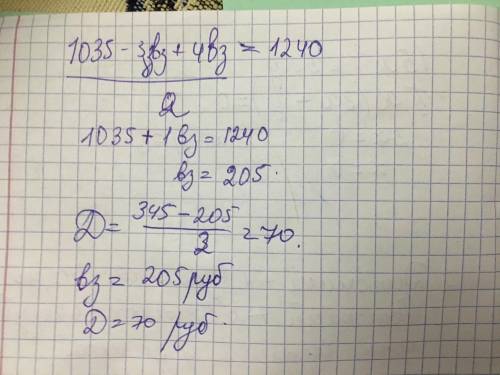 1035 - 3вз + 4вз = 1240
2
1035 + 1вз = 1240
вз = 205.
345 - 205
Д = = 70.
2
вз = 205 руб
Д = 70 руб.